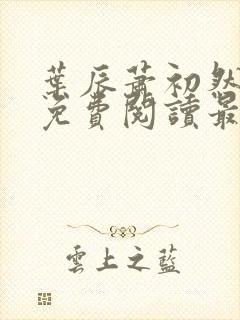 葉辰蕭初然
免費閱讀最
雲上之藍